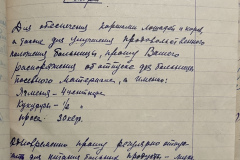 Для обеспечения кормами лошадей и коров,
а также для улучшения продовольственного
положения больницы, прошу Вашего
распоряжения об отпуске для больницы
посевного материала, а именно:
Ячменя - 4 центнера
Кукурузы - ½ "
Проса - 30 кгр.
Одновременно прошу разрешить отпус-
для питания больных продукты -